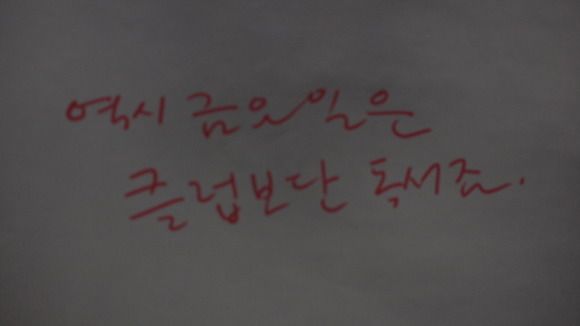 역시 금요일은
클럽보단 독서죠.